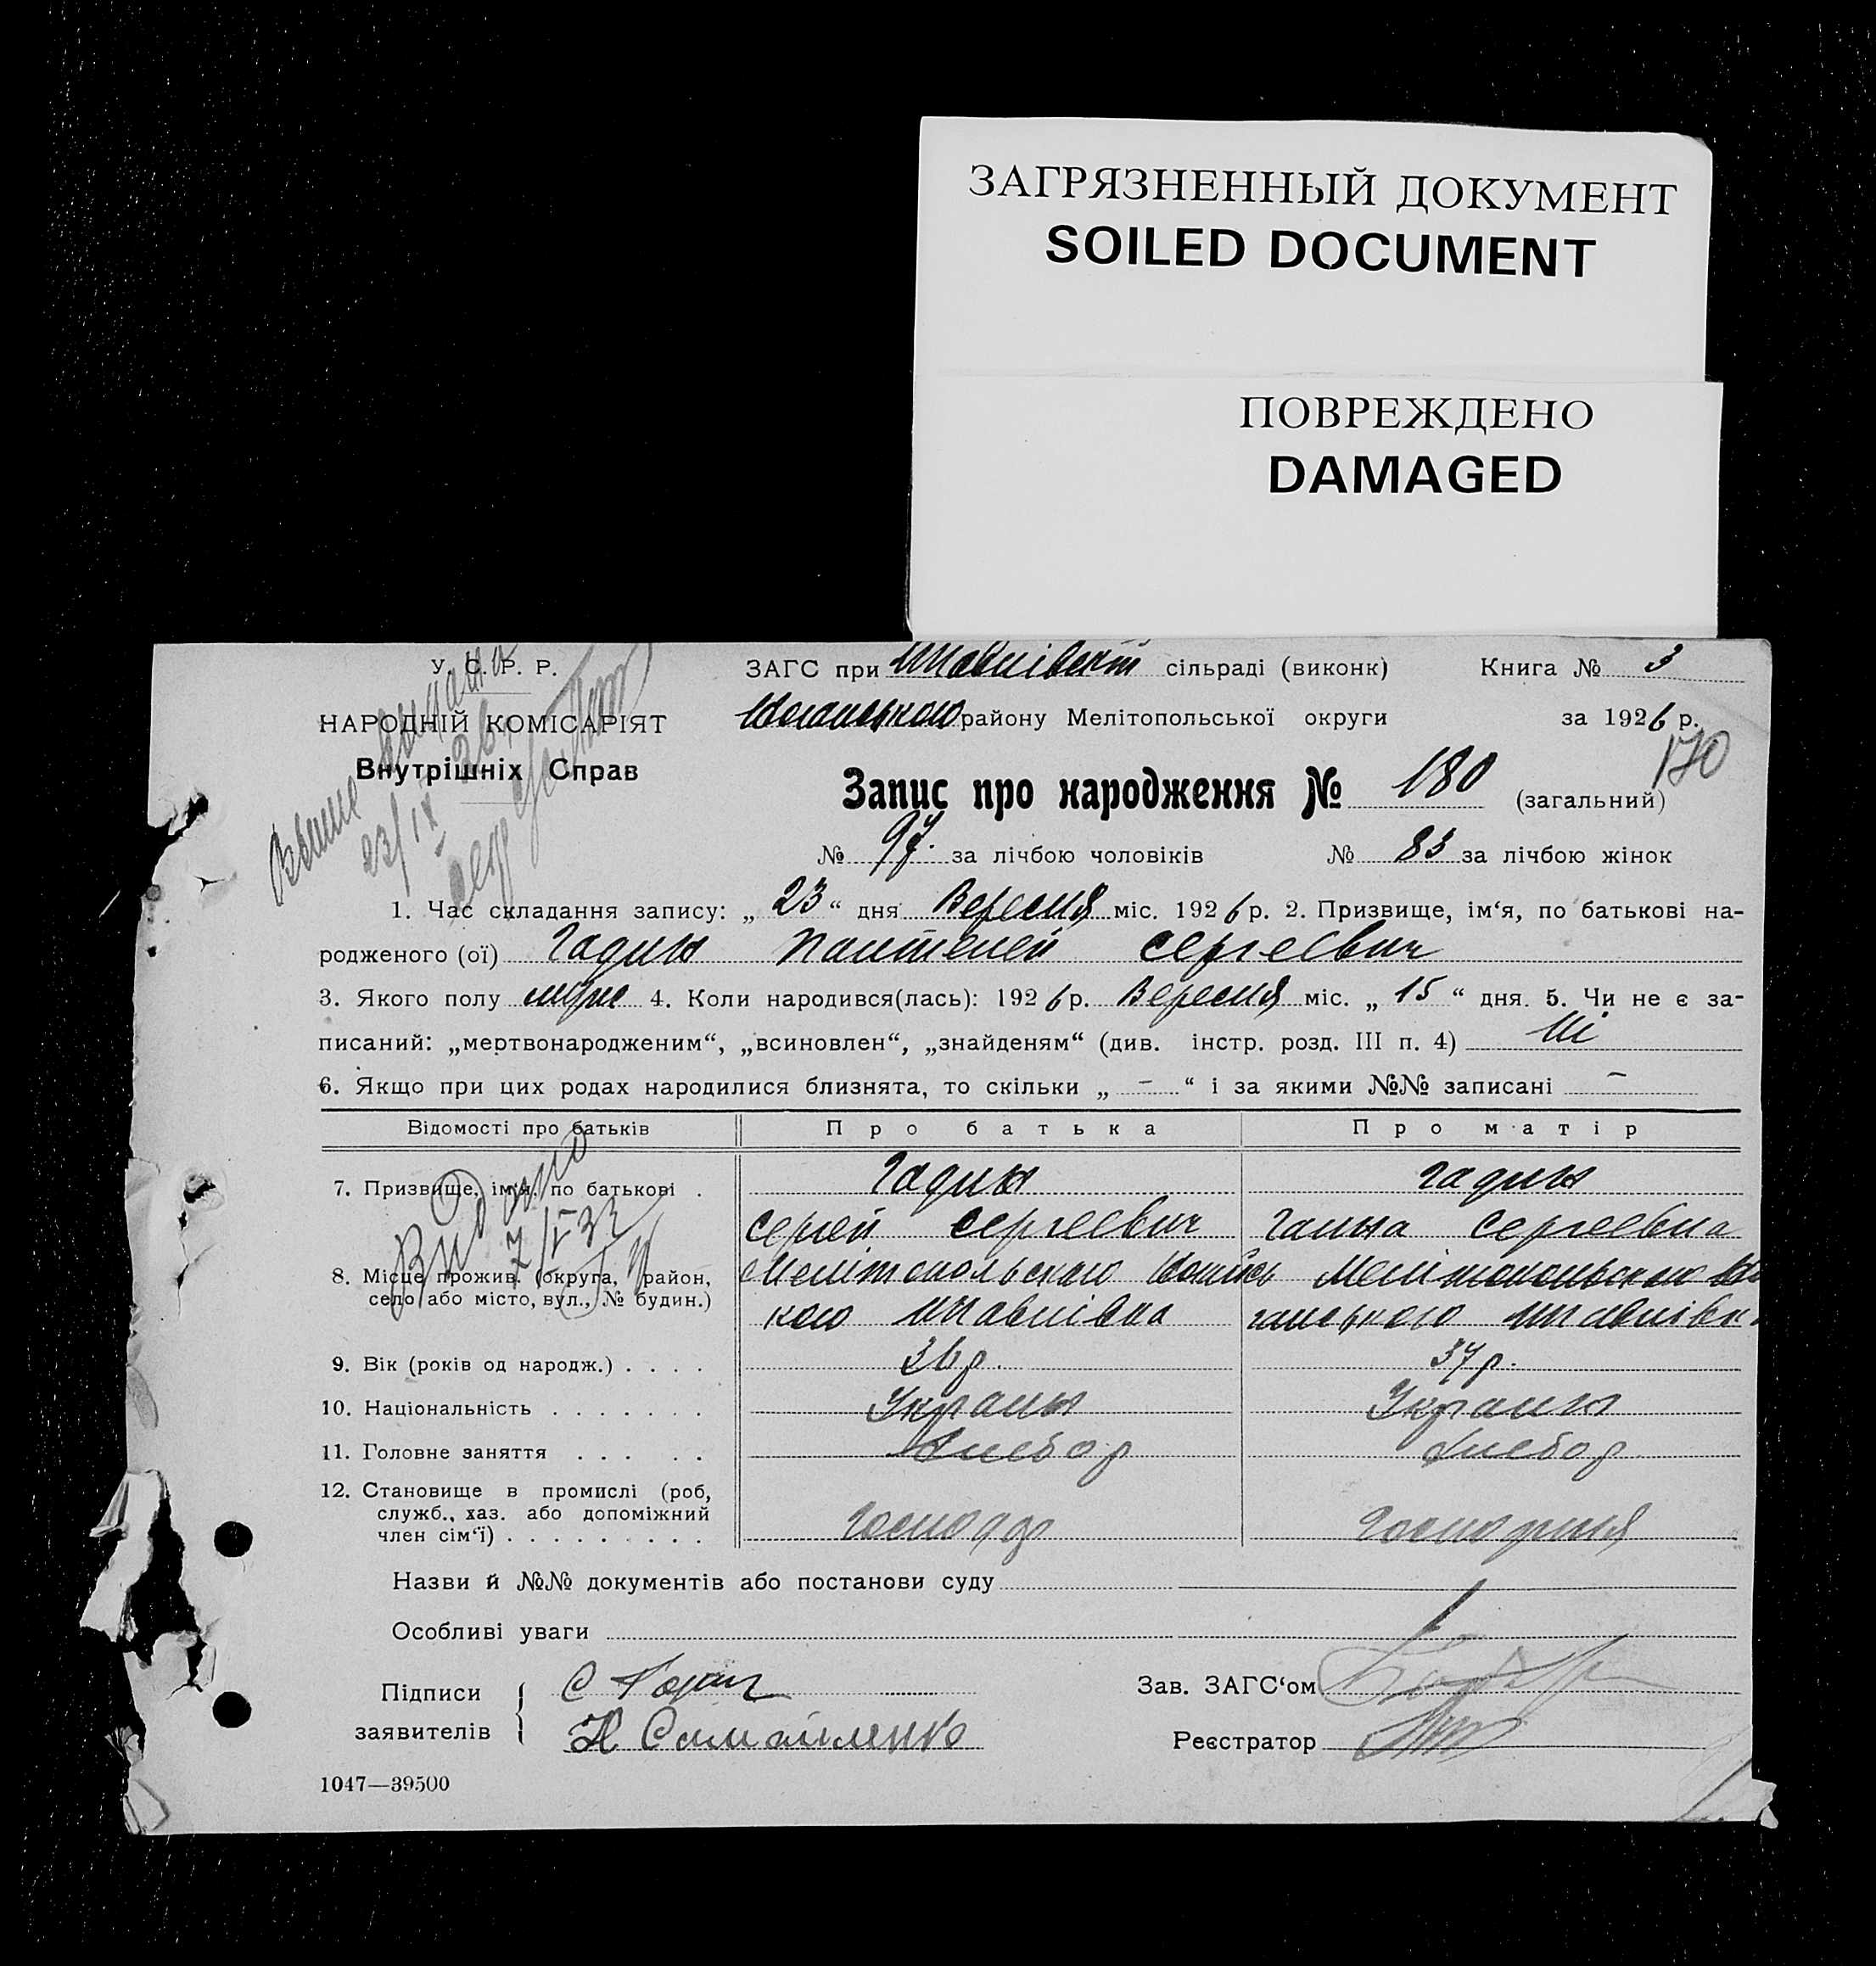 ЗАГРЯЗНЕННЫЙ ДОКУМЕНТ
SOILED DOCUMENT
ПОВРЕЖДЕНО
DAMAGED
У. С. Р. Р.
НАРОДНІЙ КОМІСАРІЯТ
Внутрішніх Справ
23/IX 26
ЗАГС при сільраді (виконк) Книга № 3
району Мелітопольської округи за 1926 р.
170
Запис про народження № 180 (загальний)
№ 97. за лічбою чоловіків № 83 за лічбою жінок
1. Час складання запису: „ 23 “ дня Вересня міс. 1926 р. 2. Призвище, ім‘я, по батькові на-
родженого (ої) Пантелей Сергеевич
3. Якого полу 4. Коли народився(лась): 1926 р. Вересня міс. „ 15 “ дня. 5. Чи не є за-
писаний: „мертвонародженим“, „всиновлен“, „знайденям“ (див. інстр. розд. III п. 4) Ні
6. Якщо при цих родах народилися близнята, то скільки „ – “ і за якими №№ записані –
Відомості про батьків Про батька Про матір
7. Призвище, ім‘я, по батькові .
Сергей Сергеевич Ганна Сергеевна
Видано
7/I 33
8. Місце прожив. (округа, район,
село або місто, вул., № будин.)
Мелітопольского Мелітопольского
9. Вік (років од народж.) . . . . 36 р. 37 р.
10. Національність . . . . . . .
11. Головне заняття . . . . . Хлебор Хлебор
12. Становище в промислі (роб,
служб., хаз. або допоміжний
член сім‘ї) . . . . . . . . . Господар Господиня
Назви й №№ документів або постанови суду
Особливі уваги
Підписи
заявителів
Н Самойленко
Зав. ЗАГС‘ом
Реєстратор
1047—39500